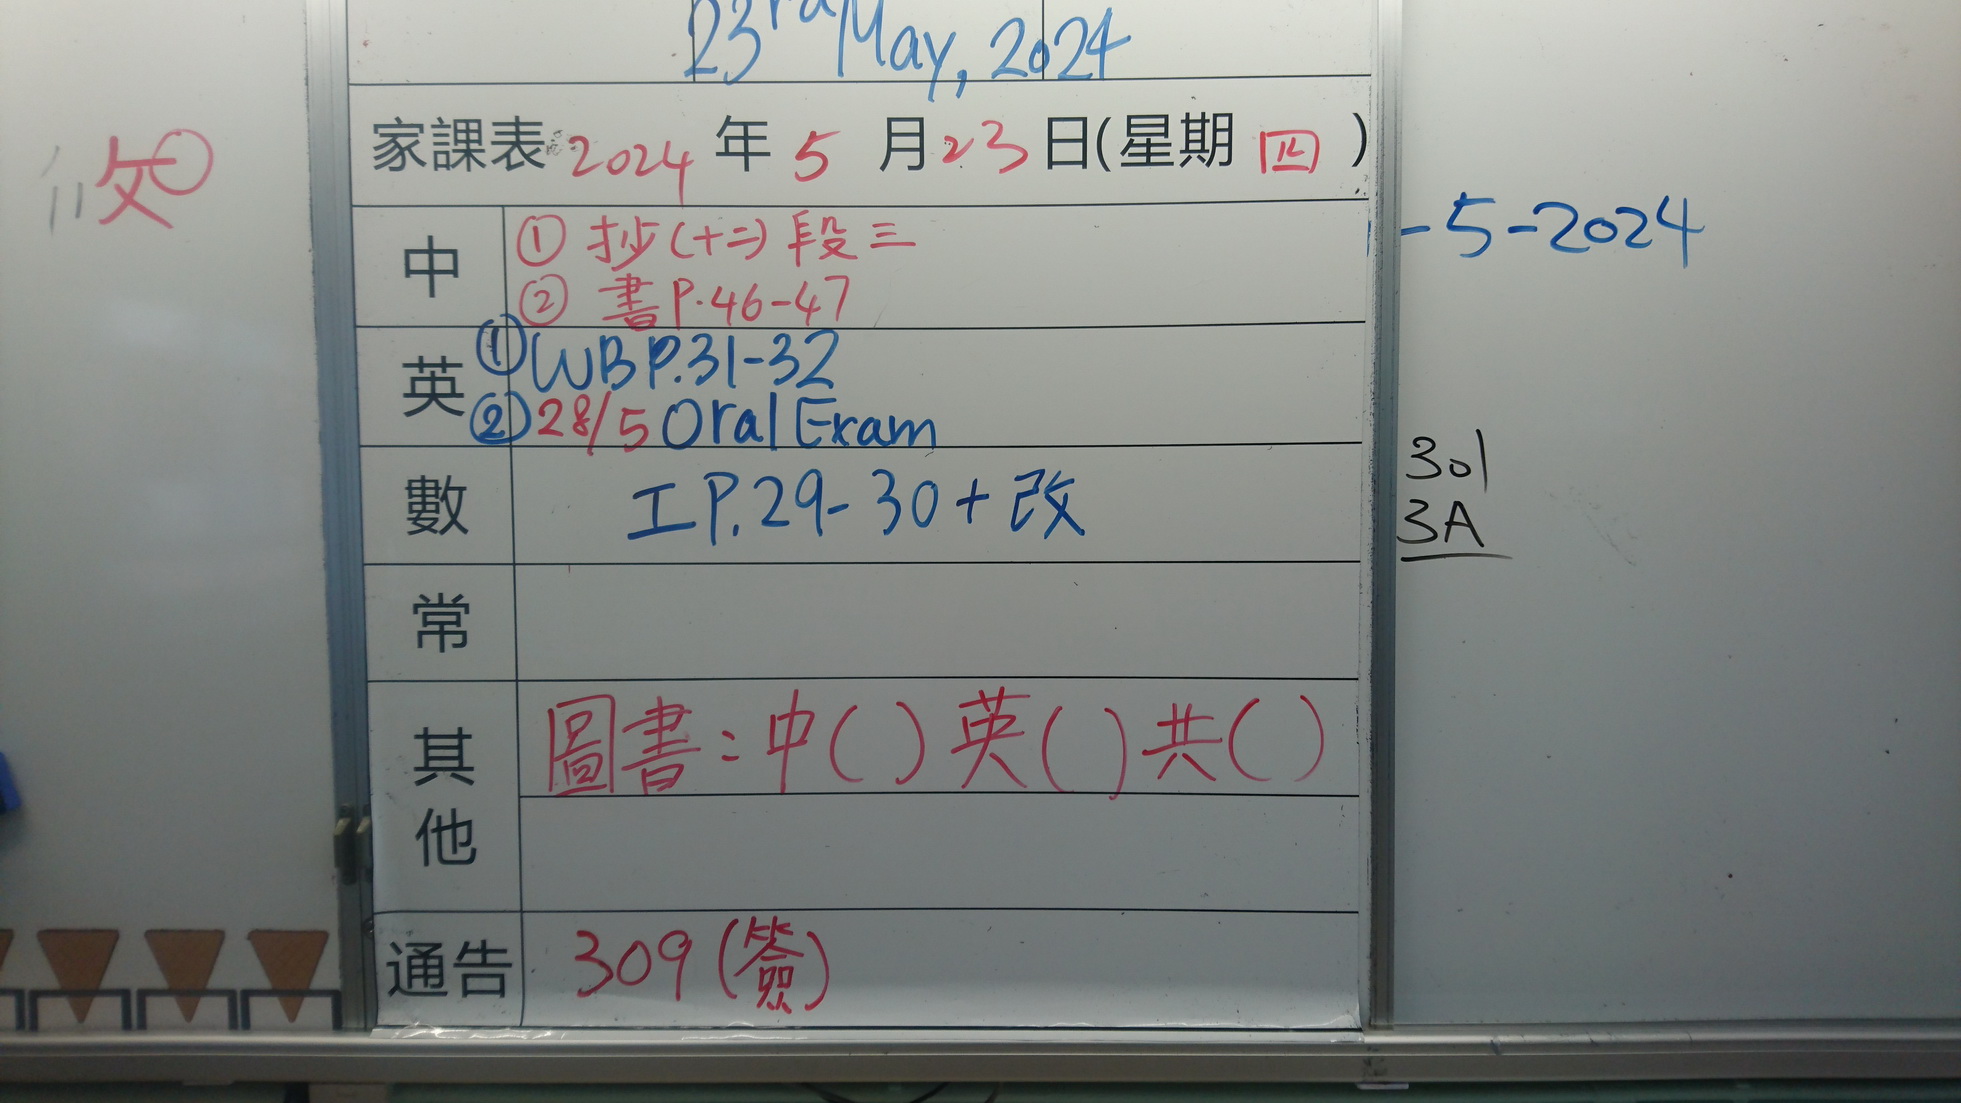 23rd May, 2024
家課表 2024 年 5 月 23 日(星期 四 )
中
① 抄(十二) 段三
② 書 P.46-47
英
① WB P.31-32
② 28/5 Oral Exam
數
工 P.29-30 + 改
常
其他
圖書:中( ) 英( ) 共( )
通告
309 (簽)
-5-2024
301
3A